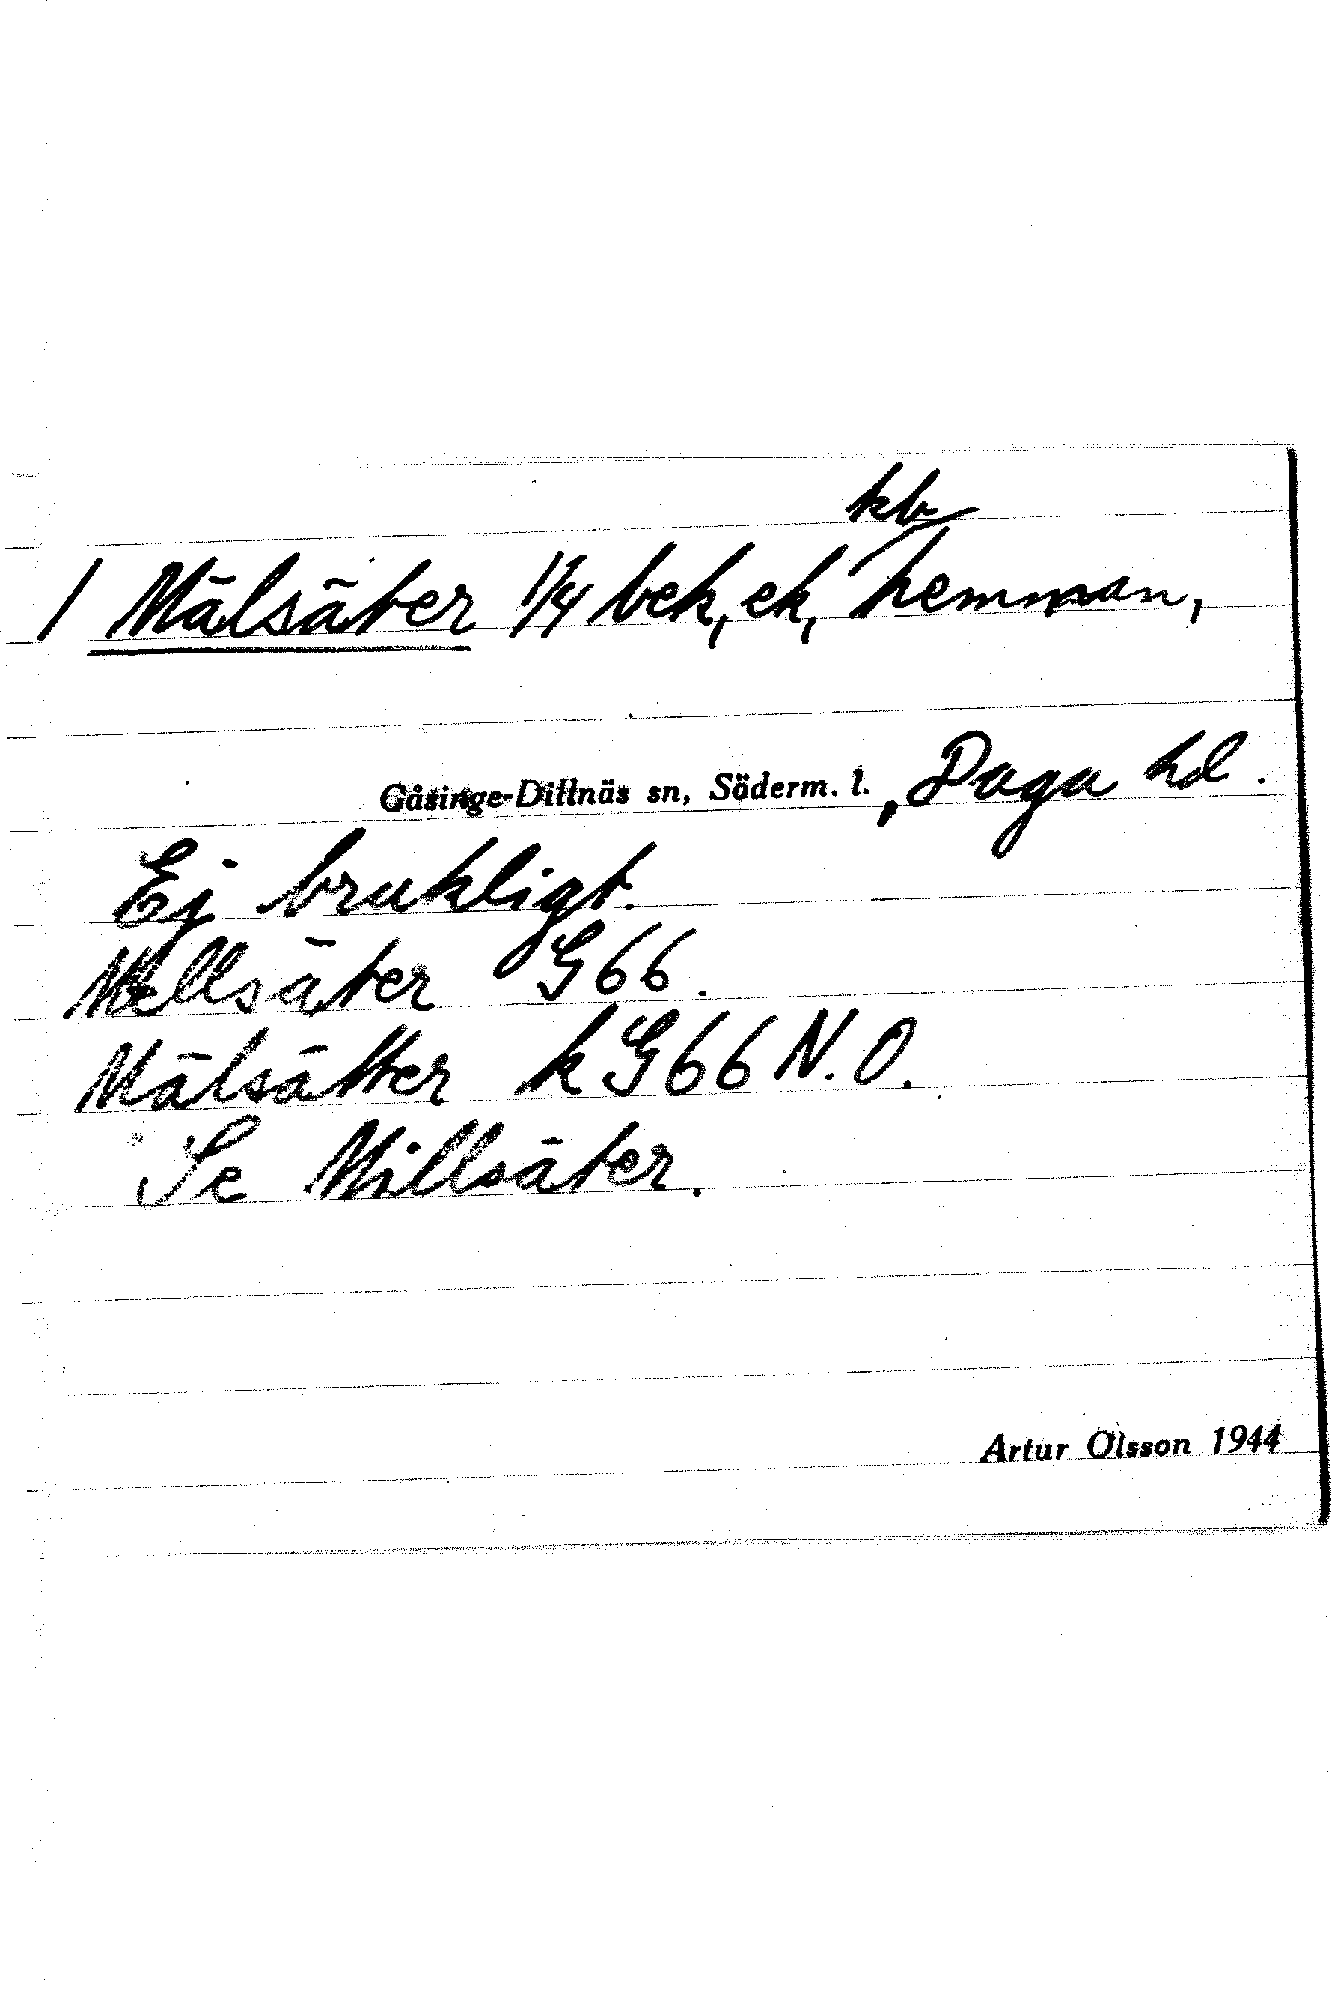 kb
/ Mälsäter 1/4 bek, ek, hemman,
Gåsinge-Dillnäs sn, Söderm. l., Daga hd.
Ej brukligt.
Mellsäter G66.
Mälsätter k G66 N.O.
Se Millsäter.
Artur Olsson 1944